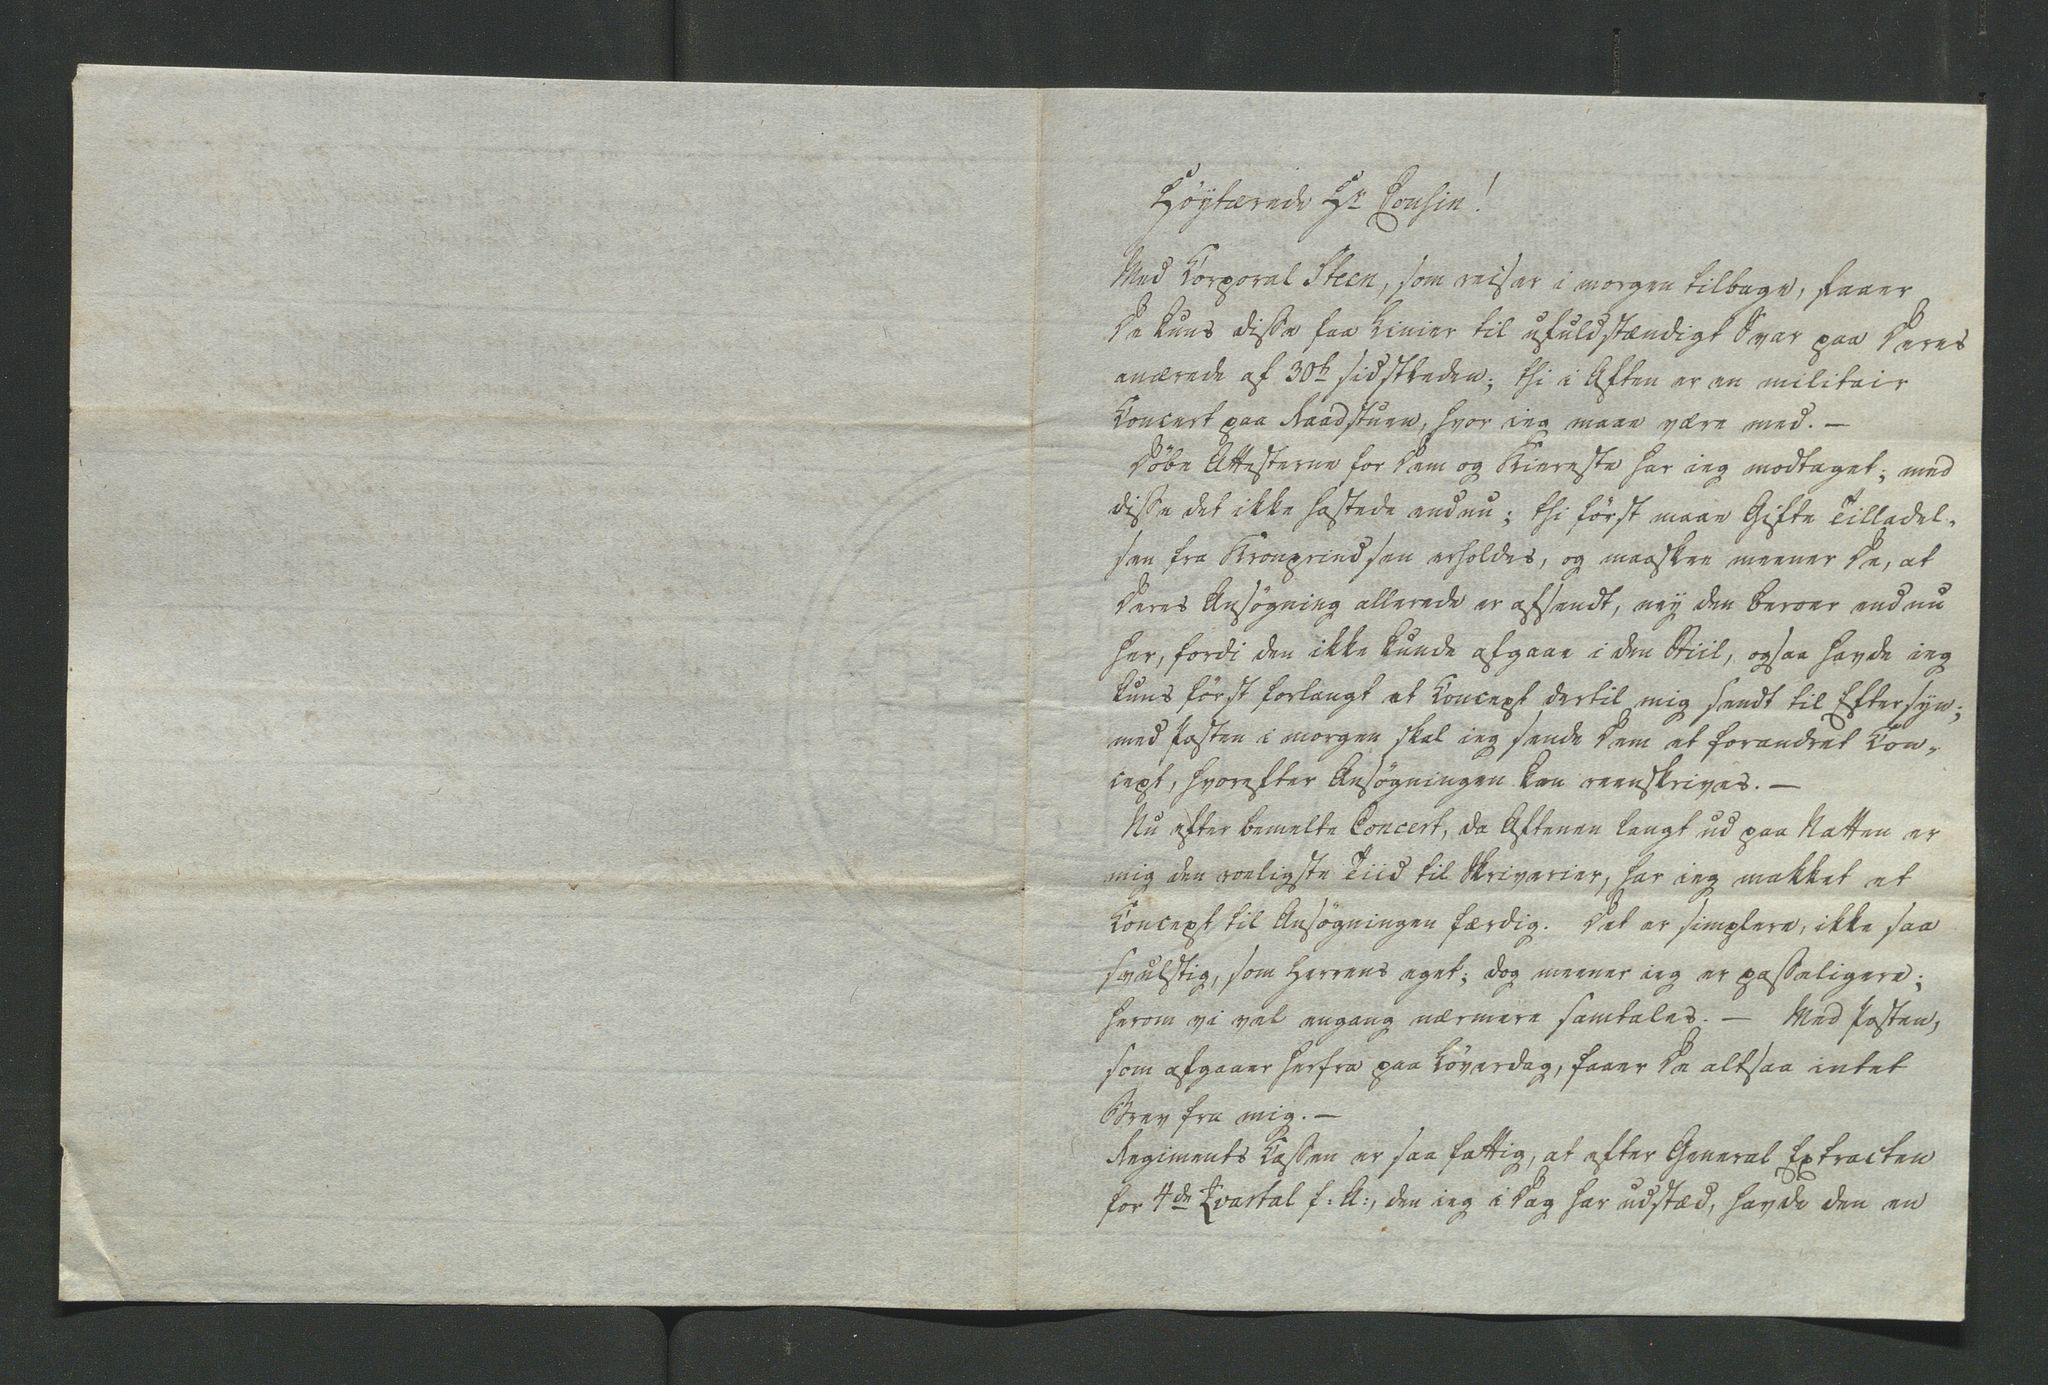 Höytærede Hr Cousin!
Med Korporal Steen, som reiser i morgen tilbage, faaer
De kuns disse faa Linier til ufuldstændigt Svar paa Deres
anærede af 30te sidstleden; thi i Aften er en militair
Concert paa Raadstuen, hvor ieg maae være med. —
Döbe Attesterne for Dem og Kiereste har ieg modtaget; med
disse det ikke hastede endnu; thi först maae Gifte Tilladel-
sen fra Kronprindsen erholdes, og maaskee meener De, at
Deres Ansögning allerede er afsendt, ney den beroer endnu
her, fordi den ikke kunde afgaae i den Stiil, ogsaa havde ieg
kuns först forlangt et Concept dertil mig sendt til Eftersyn;
med Posten i morgen skal ieg sende Dem et forandret Con-
cept, hvorefter Ansögningen kan reenskrives. —
Nu efter bemelte Concert, da Aftenen langt ud paa Natten er
mig den roeligste Tiid til Skriverier, har ieg makket et
Concept til Ansögningen færdig. Det er simplere, ikke saa
svulstig, som Herrens eget; dog meener ieg er passeligere;
herom vi vel engang nærmere samtales. — Med Posten,
som afgaaer herfra paa Löverdag, faaer De altsaa intet
Brev fra mig. —
Regiments Cassen er saa fattig, at efter General Extracten
for 4de Qvartal f: A:, den ieg i Dag har udstæd, havde den en